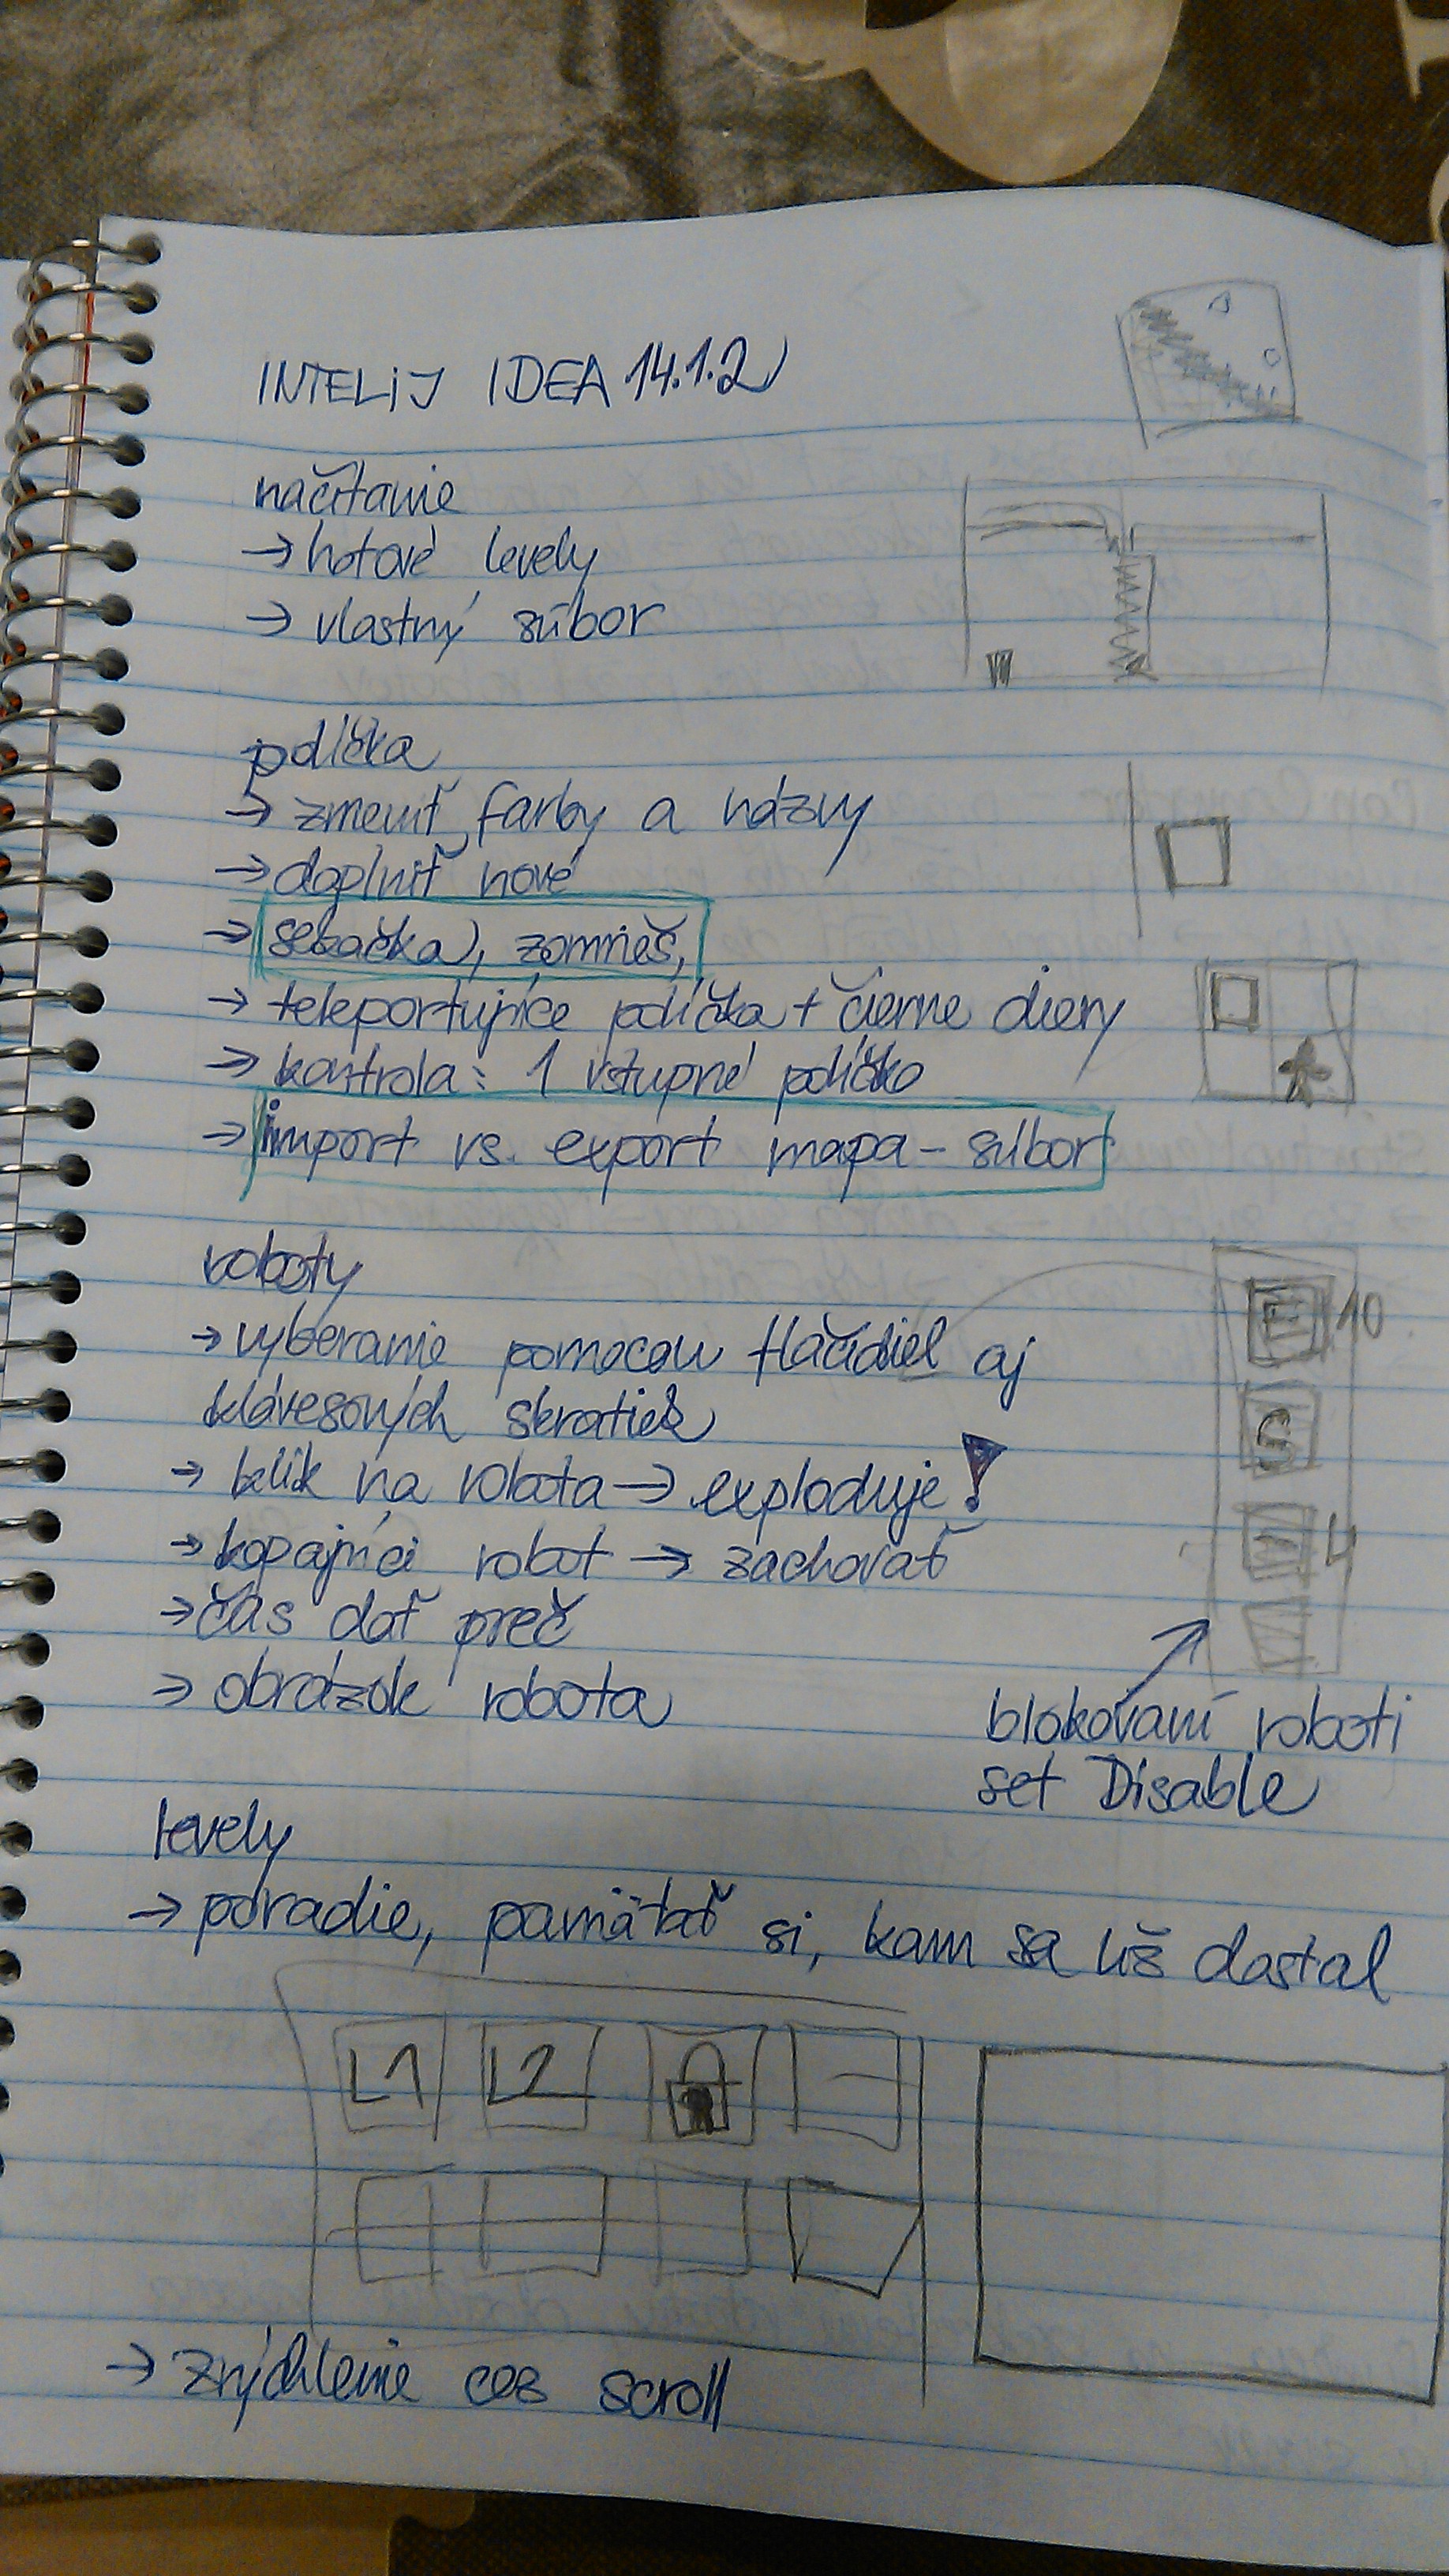 INTELiJ IDEA 14.1.2
načítanie
→ hotové levely
→ vlastný súbor
políčka
→ zmeniť farby a názvy
→ doplniť nové
→ sekačka, zomrieš,
→ teleportujúce políčka + čierne diery
→ kontrola: 1 vstupné políčko
→ import vs. export mapa - súbor
roboty
→ vyberanie pomocou tlačidiel aj
klávesových skratiek
→ klik na robota → exploduje!
→ kopajúci robot → zachovať
→ čas dať preč
→ obrázok robota
10
4
blokovaní roboti
set Disable
levely
→ poradie, pamätať si, kam sa už dostal
L1 L2
→ zrýchlenie cez scroll